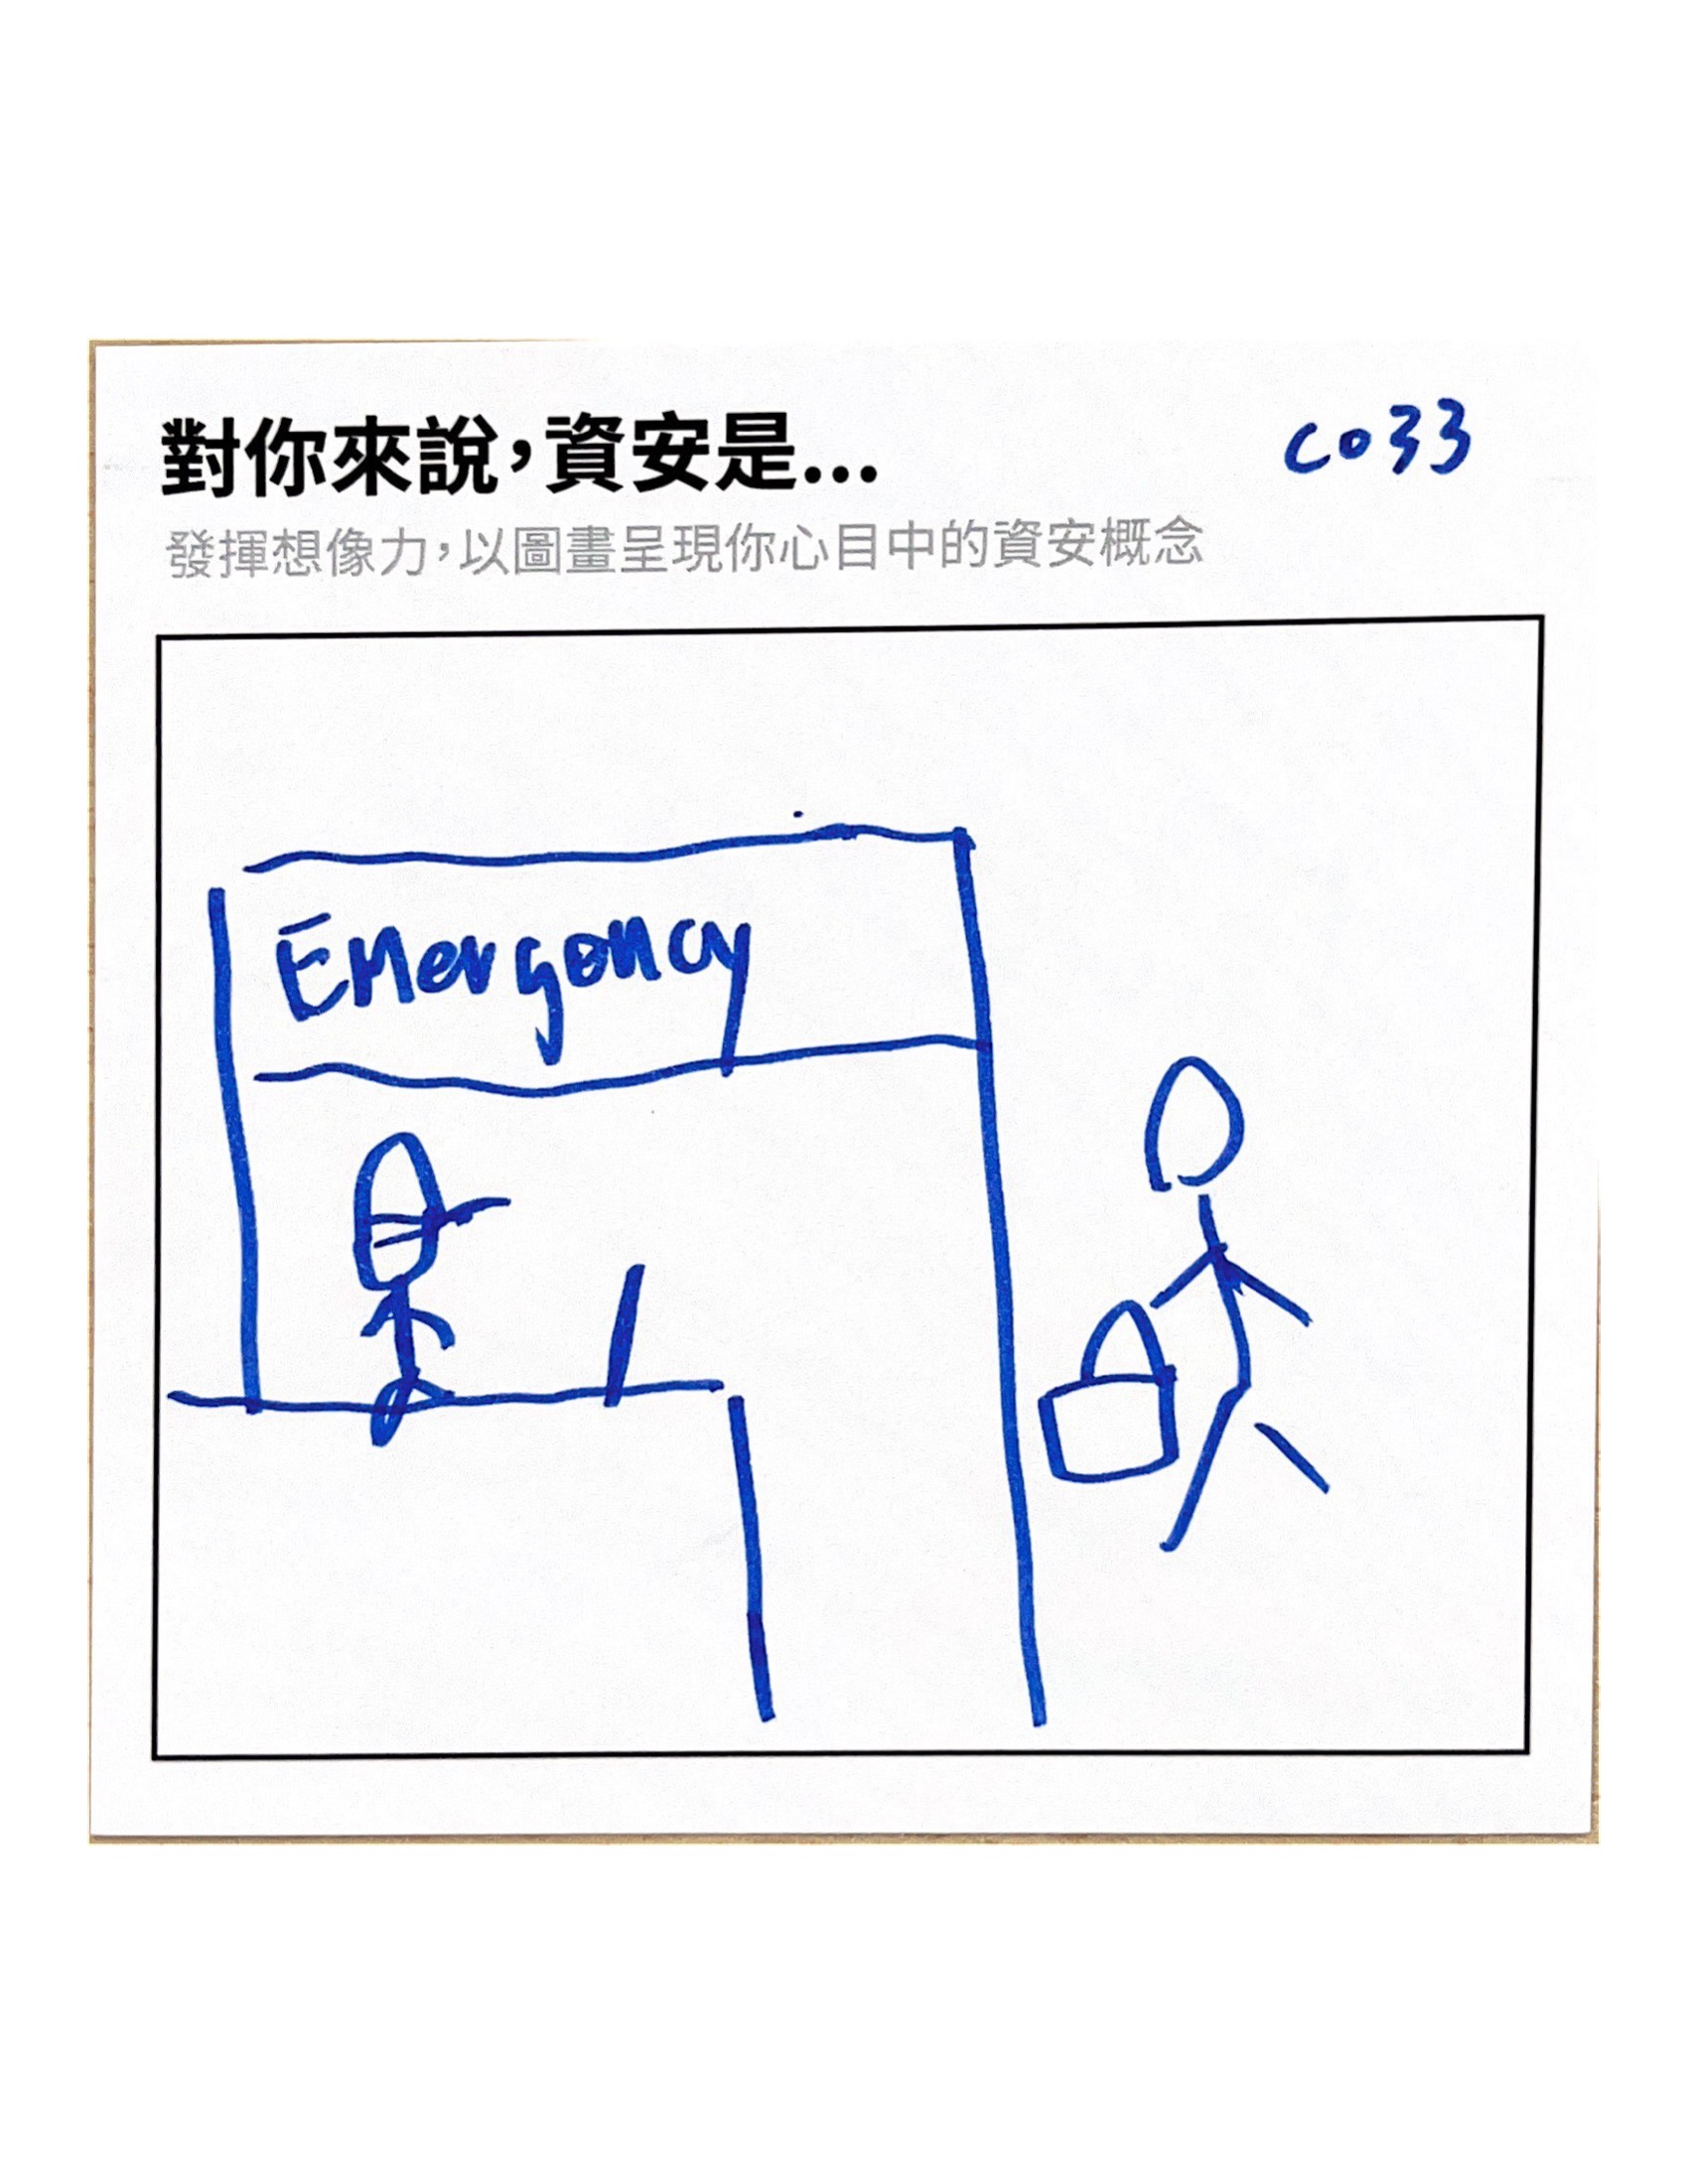 對你來說，資安是...
CO33
發揮想像力，以圖畫呈現你心目中的資安概念
Emergency